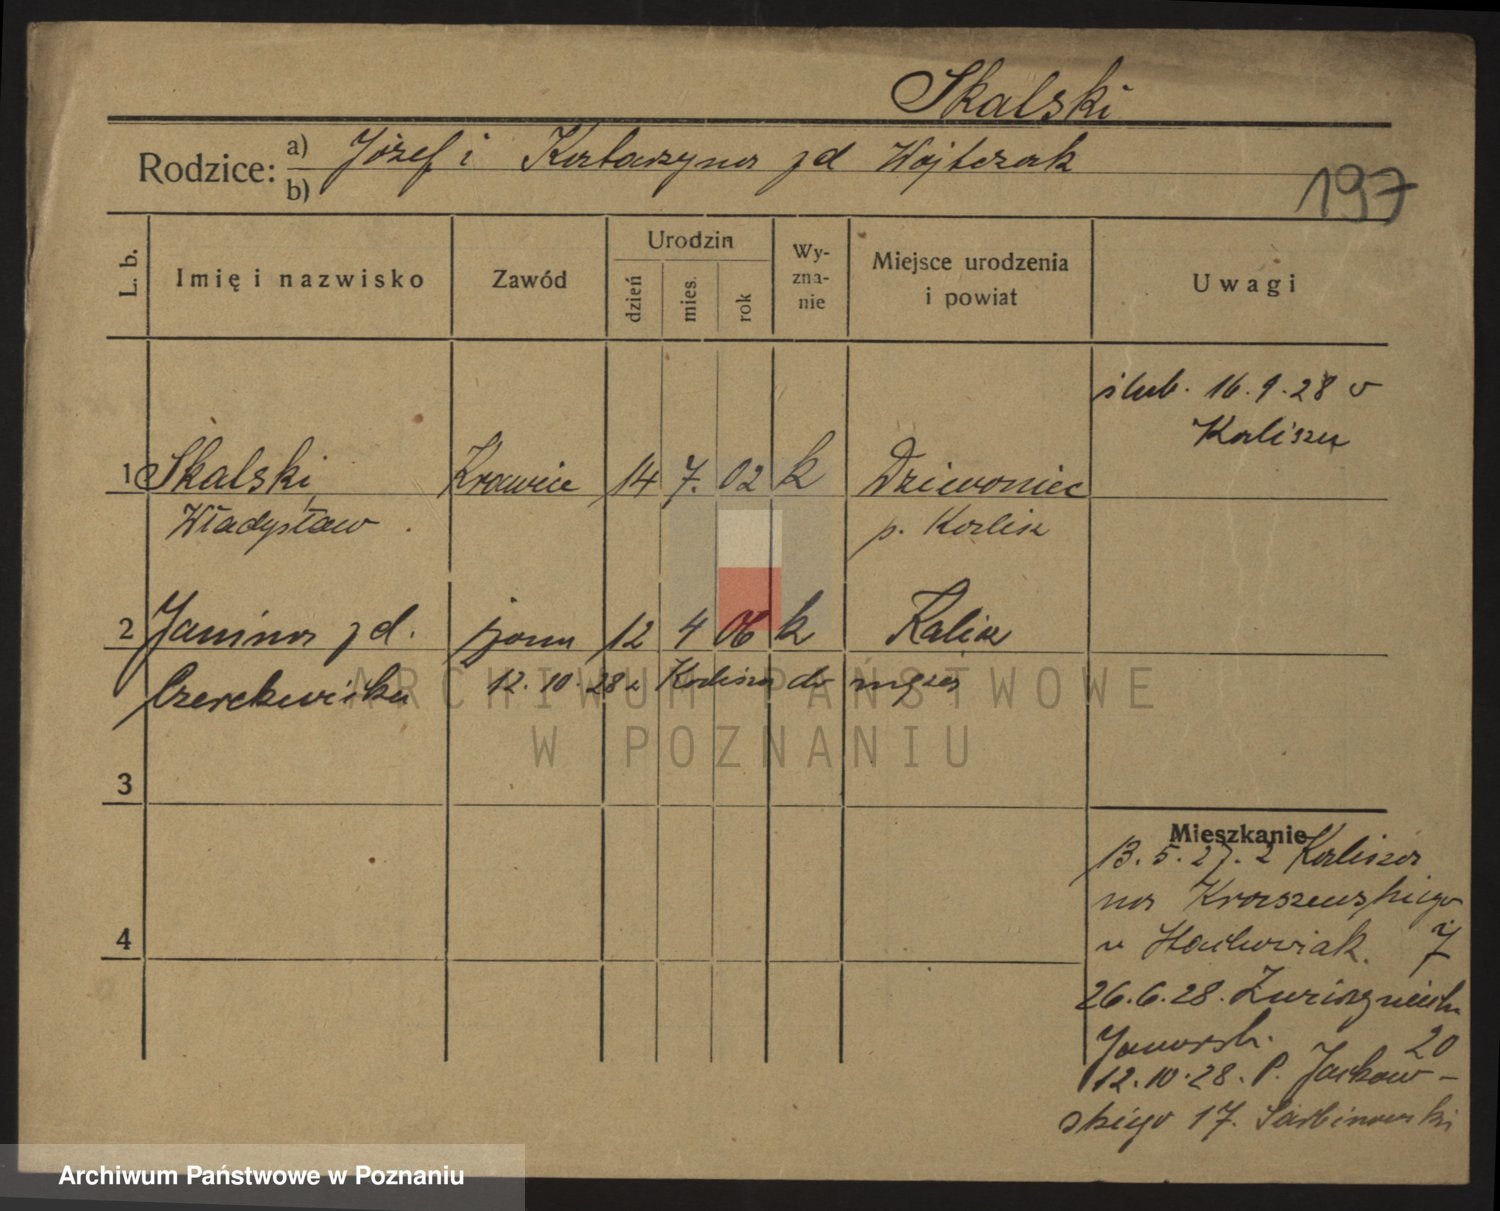 Skalski
Rodzice: a) Józef i Katarzyna zd Wojtczak
b)
197
L. b. Imię i nazwisko Zawód Urodzin dzień mies. rok Wy-zna-nie Miejsce urodzenia i powiat Uwagi
ślub. 16.9.28 w
Kaliszu
1 Skalski Krawiec 14 7. 02 k Dziewoniec
Władysław p. Kalisz
2 Janina zd. żona 12 4 06 k Kalisz
Czerekwiska 12.10.28 z Kalisza do męża
3
4
Mieszkanie
13.5.27. z Kalisza
na Kraszewskiego
u Stachowiak. 7
26.6.28.
Jaworsk. 20
12.10.28. P. Jackow-
skiego 17. Sarbinowski
ARCHIWUM PAŃSTWOWE
W POZNANIU
Archiwum Państwowe w Poznaniu